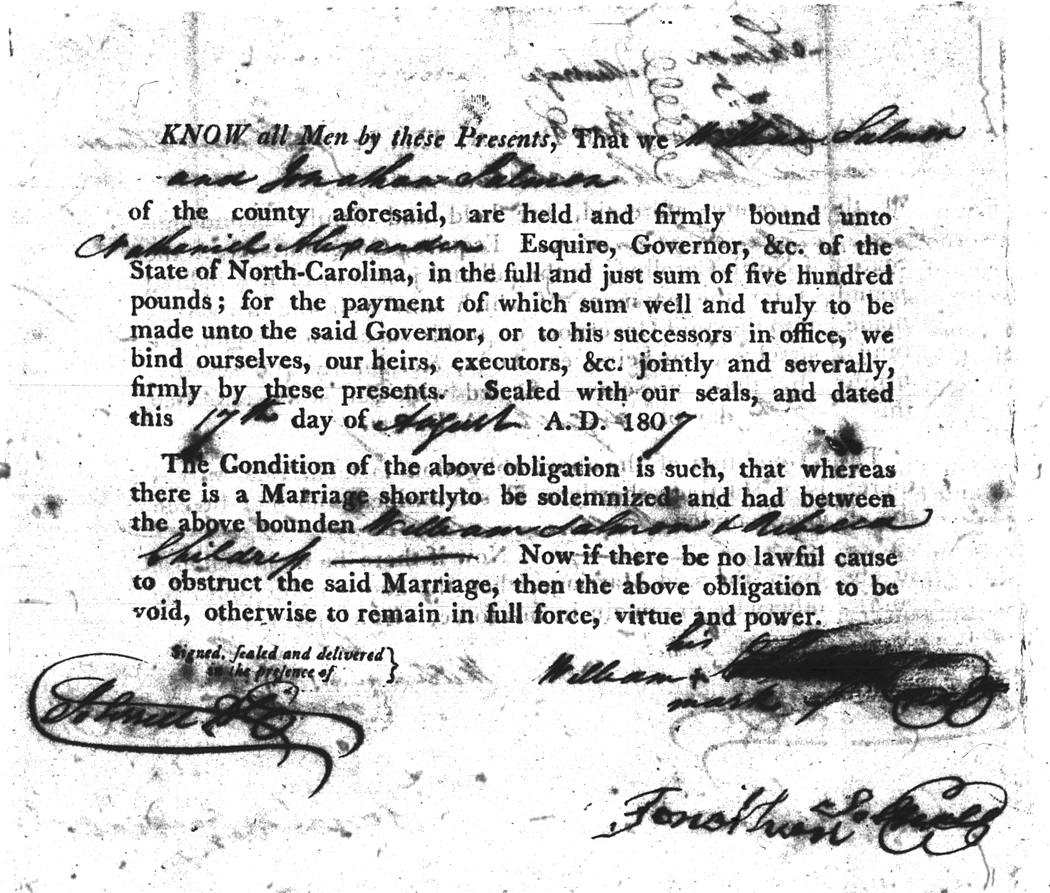 KNOW all Men by these Presents, That we William Salmon
and Jonathan Salmon
of the county aforesaid, are held and firmly bound unto
Nathaniel Alexander Esquire, Governor, &c. of the
State of North-Carolina, in the full and just sum of five hundred
pounds; for the payment of which sum well and truly to be
made unto the said Governor, or to his successors in office, we
bind ourselves, our heirs, executors, &c. jointly and severally,
firmly by these presents. Sealed with our seals, and dated
this 17th day of August A. D. 1807
The Condition of the above obligation is such, that whereas
there is a Marriage shortlyto be solemnized and had between
the above bounden William Salmon & Rebecca
Childress Now if there be no lawful cause
to obstruct the said Marriage, then the above obligation to be
void, otherwise to remain in full force, virtue and power.
Signed, sealed and delivered
in the presence of
his
William x
mark
Jonathan